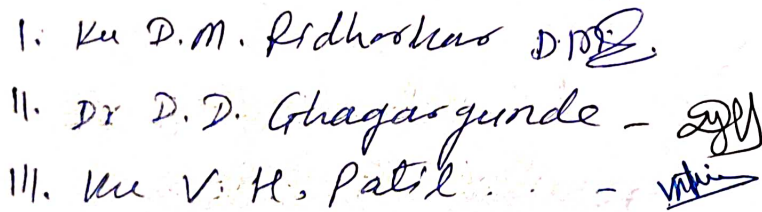 I. Ku D.M. Ridhorkar
II. Dr D.D. Ghagargunde -
III. Ku V. H. Patil . . -